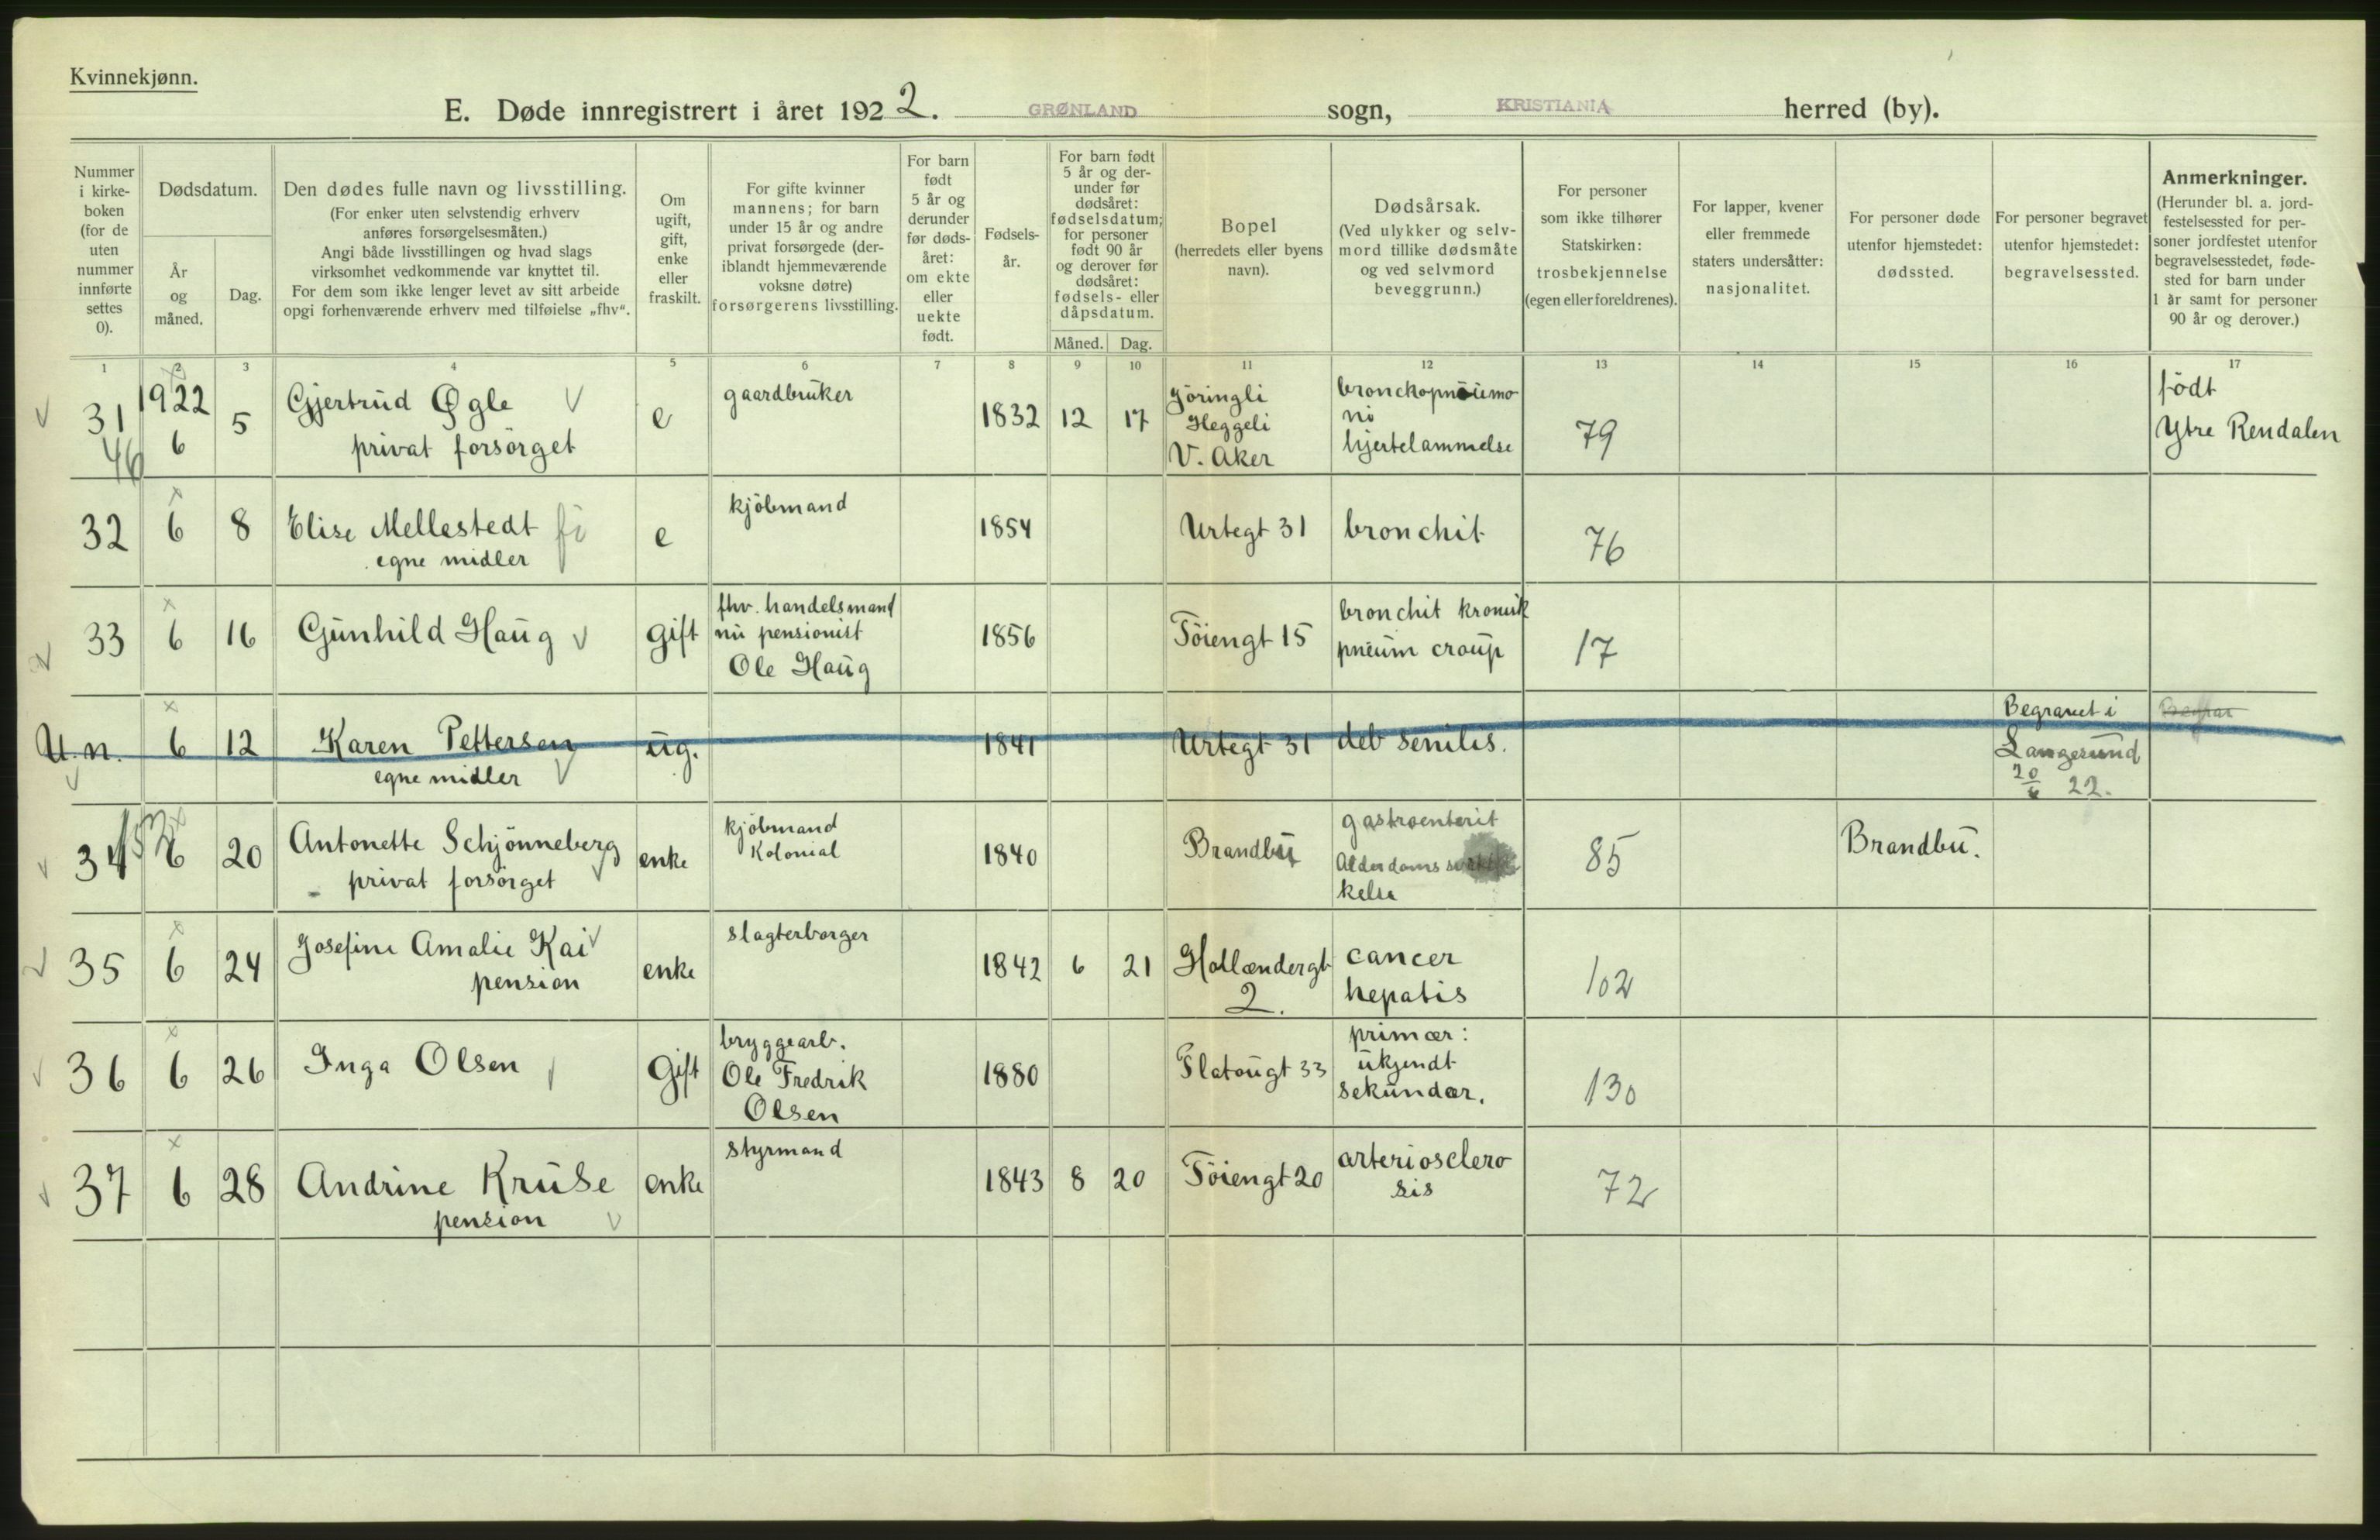 Kvinnekjønn.
E. Døde innregistrert i året 1922. GRØNLAND sogn, KRISTIANIA herred (by).
Nummer
i kirke-
boken
(for de
uten
nummer
innførte
settes
0).
Dødsdatum.
År
og
måned.
Dag.
Den dødes fulle navn og livsstilling.
(For enker uten selvstendig erhverv
anføres forsørgelsesmåten.)
Angi både livsstillingen og hvad slags
virksomhet vedkommende var knyttet til.
For dem som ikke lenger levet av sitt arbeide
opgi forhenværende erhverv med tilføielse „fhv“.
Om
ugift,
gift,
enke
eller
fraskilt.
For gifte kvinner
mannens; for barn
under 15 år og andre
privat forsørgede (der-
iblandt hjemmeværende
voksne døtre)
forsørgerens livsstilling.
For barn
født
5 år og
derunder
før døds-
året:
om ekte
eller
uekte
født.
Fødsels-
år.
For barn født
5 år og der-
under før
dødsåret:
fødselsdatum;
for personer
født 90 år
og derover før
dødsåret:
fødsels- eller
dåpsdatum.
Måned. Dag.
Bopel
(herredets eller byens
navn).
Dødsårsak.
(Ved ulykker og selv-
mord tillike dødsmåte
og ved selvmord
beveggrunn.)
For personer
som ikke tilhører
Statskirken:
trosbekjennelse
(egen eller foreldrenes).
For lapper, kvener
eller fremmede
staters undersåtter:
nasjonalitet.
For personer døde
utenfor hjemstedet:
dødssted.
For personer begravet
utenfor hjemstedet:
begravelsessted.
Anmerkninger.
(Herunder bl. a. jord-
festelsessted for per-
soner jordfestet utenfor
begravelsesstedet, føde-
sted for barn under
1 år samt for personer
90 år og derover.)
1 2 3 4 5 6 7 8 9 10 11 12 13 14 15 16 17
31
46
1922
6
5
Gjertrud Øgle
privat forsørget
e
gaardbruker
1832 12 17
Heggeli
V. Aker
hjertelammelse
79
født
Ytre Rendalen
32 6 8
Elise Mellestedt
egne midler
e
kjøbmand
1854
Urtegt 31
bronchit
76
33 6 16
Gunhild Haug
gift
fhv. handelsmand
nu pensionist
Ole Haug
1856
Töiengt 15
bronchit kronisk
pneum croup
17
U.n. 6 12
Karen Pettersen
egne midler
ug.
1841
Urtegt 31
deb senilis.
Begravet i
Langesund
20/6 22.
Begrav
34 6 20
Antonette Schjönneberg
privat forsørget
enke
kjøbmand
Kolonial
1840
Brandbu
gastroenterit
kelse
85
Brandbu.
35 6 24
Josefine Amalie Kai
pension
enke
slagterborger
1842 6 21
Hollændergt
2.
cancer
hepatis
102
36 6 26
Inga Olsen
Gift
bryggearb.
Ole Fredrik
Olsen
1880
Platougt 33
primær:
ukjendt
sekundær.
130
37 6 28
Andrine Kruse
pension
enke
styrmand
1843 8 20
Töiengt 20
arterioschlero
sis
72